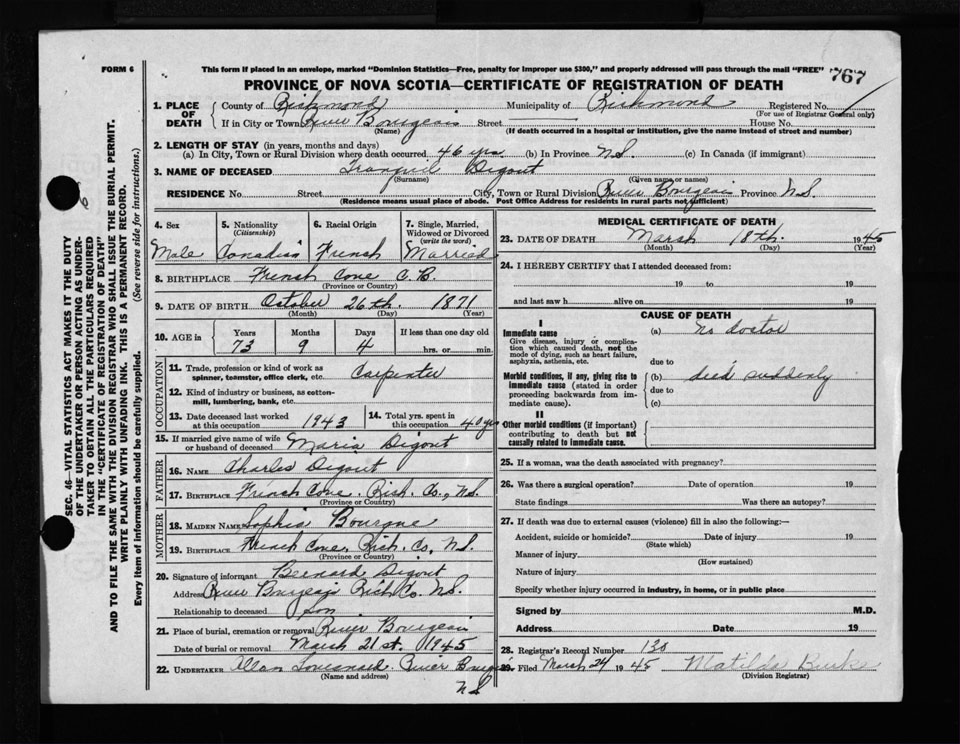 FORM 6
This form if placed in an envelope, marked "Dominion Statistics—Free, penalty for improper use $300," and properly addressed will pass through the mail "FREE"
767
PROVINCE OF NOVA SCOTIA—CERTIFICATE OF REGISTRATION OF DEATH
1. PLACE OF DEATH { County of Richmond Municipality of Richmond Registered No.
(For use of Registrar General only)
If in City or Town River Bourgeois Street House No.
(Name) (If death occurred in a hospital or institution, give the name instead of street and number)
2. LENGTH OF STAY (in years, months and days)
(a) In City, Town or Rural Division where death occurred 46 yrs. (b) In Province N.S. (c) In Canada (if immigrant)
3. NAME OF DECEASED Tranquil Digout
(Surname) (Given name or names)
RESIDENCE No. Street City, Town or Rural Division River Bourgeois Province N.S.
(Residence means usual place of abode. Post Office Address for residents in rural parts not sufficient)
4. Sex 5. Nationality 6. Racial Origin 7. Single, Married, Widowed or Divorced
(Citizenship) (write the word)
Male Canadian French Married
8. BIRTHPLACE French Cove C.B.
(Province or Country)
9. DATE OF BIRTH October 26th. 1871
(Month) (Day) (Year)
10. AGE in { Years Months Days If less than one day old
73 9 4 hrs. or min.
OCCUPATION
11. Trade, profession or kind of work as spinner, teamster, office clerk, etc. Carpenter
12. Kind of industry or business, as cotton-mill, lumbering, bank, etc.
13. Date deceased last worked at this occupation 1943 14. Total yrs. spent in this occupation 40 yrs
15. If married give name of wife or husband of deceased Maria Digout
FATHER
16. NAME Charles Digout
17. BIRTHPLACE French Cove. Rich. Co., N.S.
(Province or Country)
MOTHER
18. MAIDEN NAME Sophia Bourque
19. BIRTHPLACE French Cove, Rich. Co, N.S.
(Province or Country)
20. Signature of informant Bernard Digout
Address River Bourgeois Rich Co. N.S.
Relationship to deceased Son
21. Place of burial, cremation or removal River Bourgeois
Date of burial or removal March 21st. 1945
22. UNDERTAKER River Bourgeois
(Name and address) N.S.
MEDICAL CERTIFICATE OF DEATH
23. DATE OF DEATH Marsh 18th. 1945
(Month) (Day) (Year)
24. I HEREBY CERTIFY that I attended deceased from:
19 to 19
and last saw h alive on 19
CAUSE OF DEATH
I
Immediate cause (a) no doctor
Give disease, injury or complication which caused death, not the mode of dying, such as heart failure, asphyxia, asthenia, etc. due to
Morbid conditions, if any, giving rise to immediate cause (stated in order proceeding backwards from immediate cause). (b) died suddenly
due to
(c)
II
Other morbid conditions (if important) contributing to death but not causally related to immediate cause.
25. If a woman, was the death associated with pregnancy?
26. Was there a surgical operation? Date of operation 19
State findings Was there an autopsy?
27. If death was due to external causes (violence) fill in also the following:—
Accident, suicide or homicide? Date of injury 19
(State which)
Manner of injury
(How sustained)
Nature of injury
Specify whether injury occurred in industry, in home, or in public place
Signed by M.D.
Address Date 19
28. Registrar's Record Number 130
29. Filed March 24 1945 Matilda Burke
(Division Registrar)
SEC. 46—VITAL STATISTICS ACT MAKES IT THE DUTY
OF THE UNDERTAKER OR PERSON ACTING AS UNDER-
TAKER TO OBTAIN ALL THE PARTICULARS REQUIRED
IN THE "CERTIFICATE OF REGISTRATION OF DEATH"
AND TO FILE THE SAME WITH THE DIVISION REGISTRAR WHO SHALL ISSUE THE BURIAL PERMIT.
WRITE PLAINLY WITH UNFADING INK. THIS IS A PERMANENT RECORD.
Every item of information should be carefully supplied. (See reverse side for instructions.)